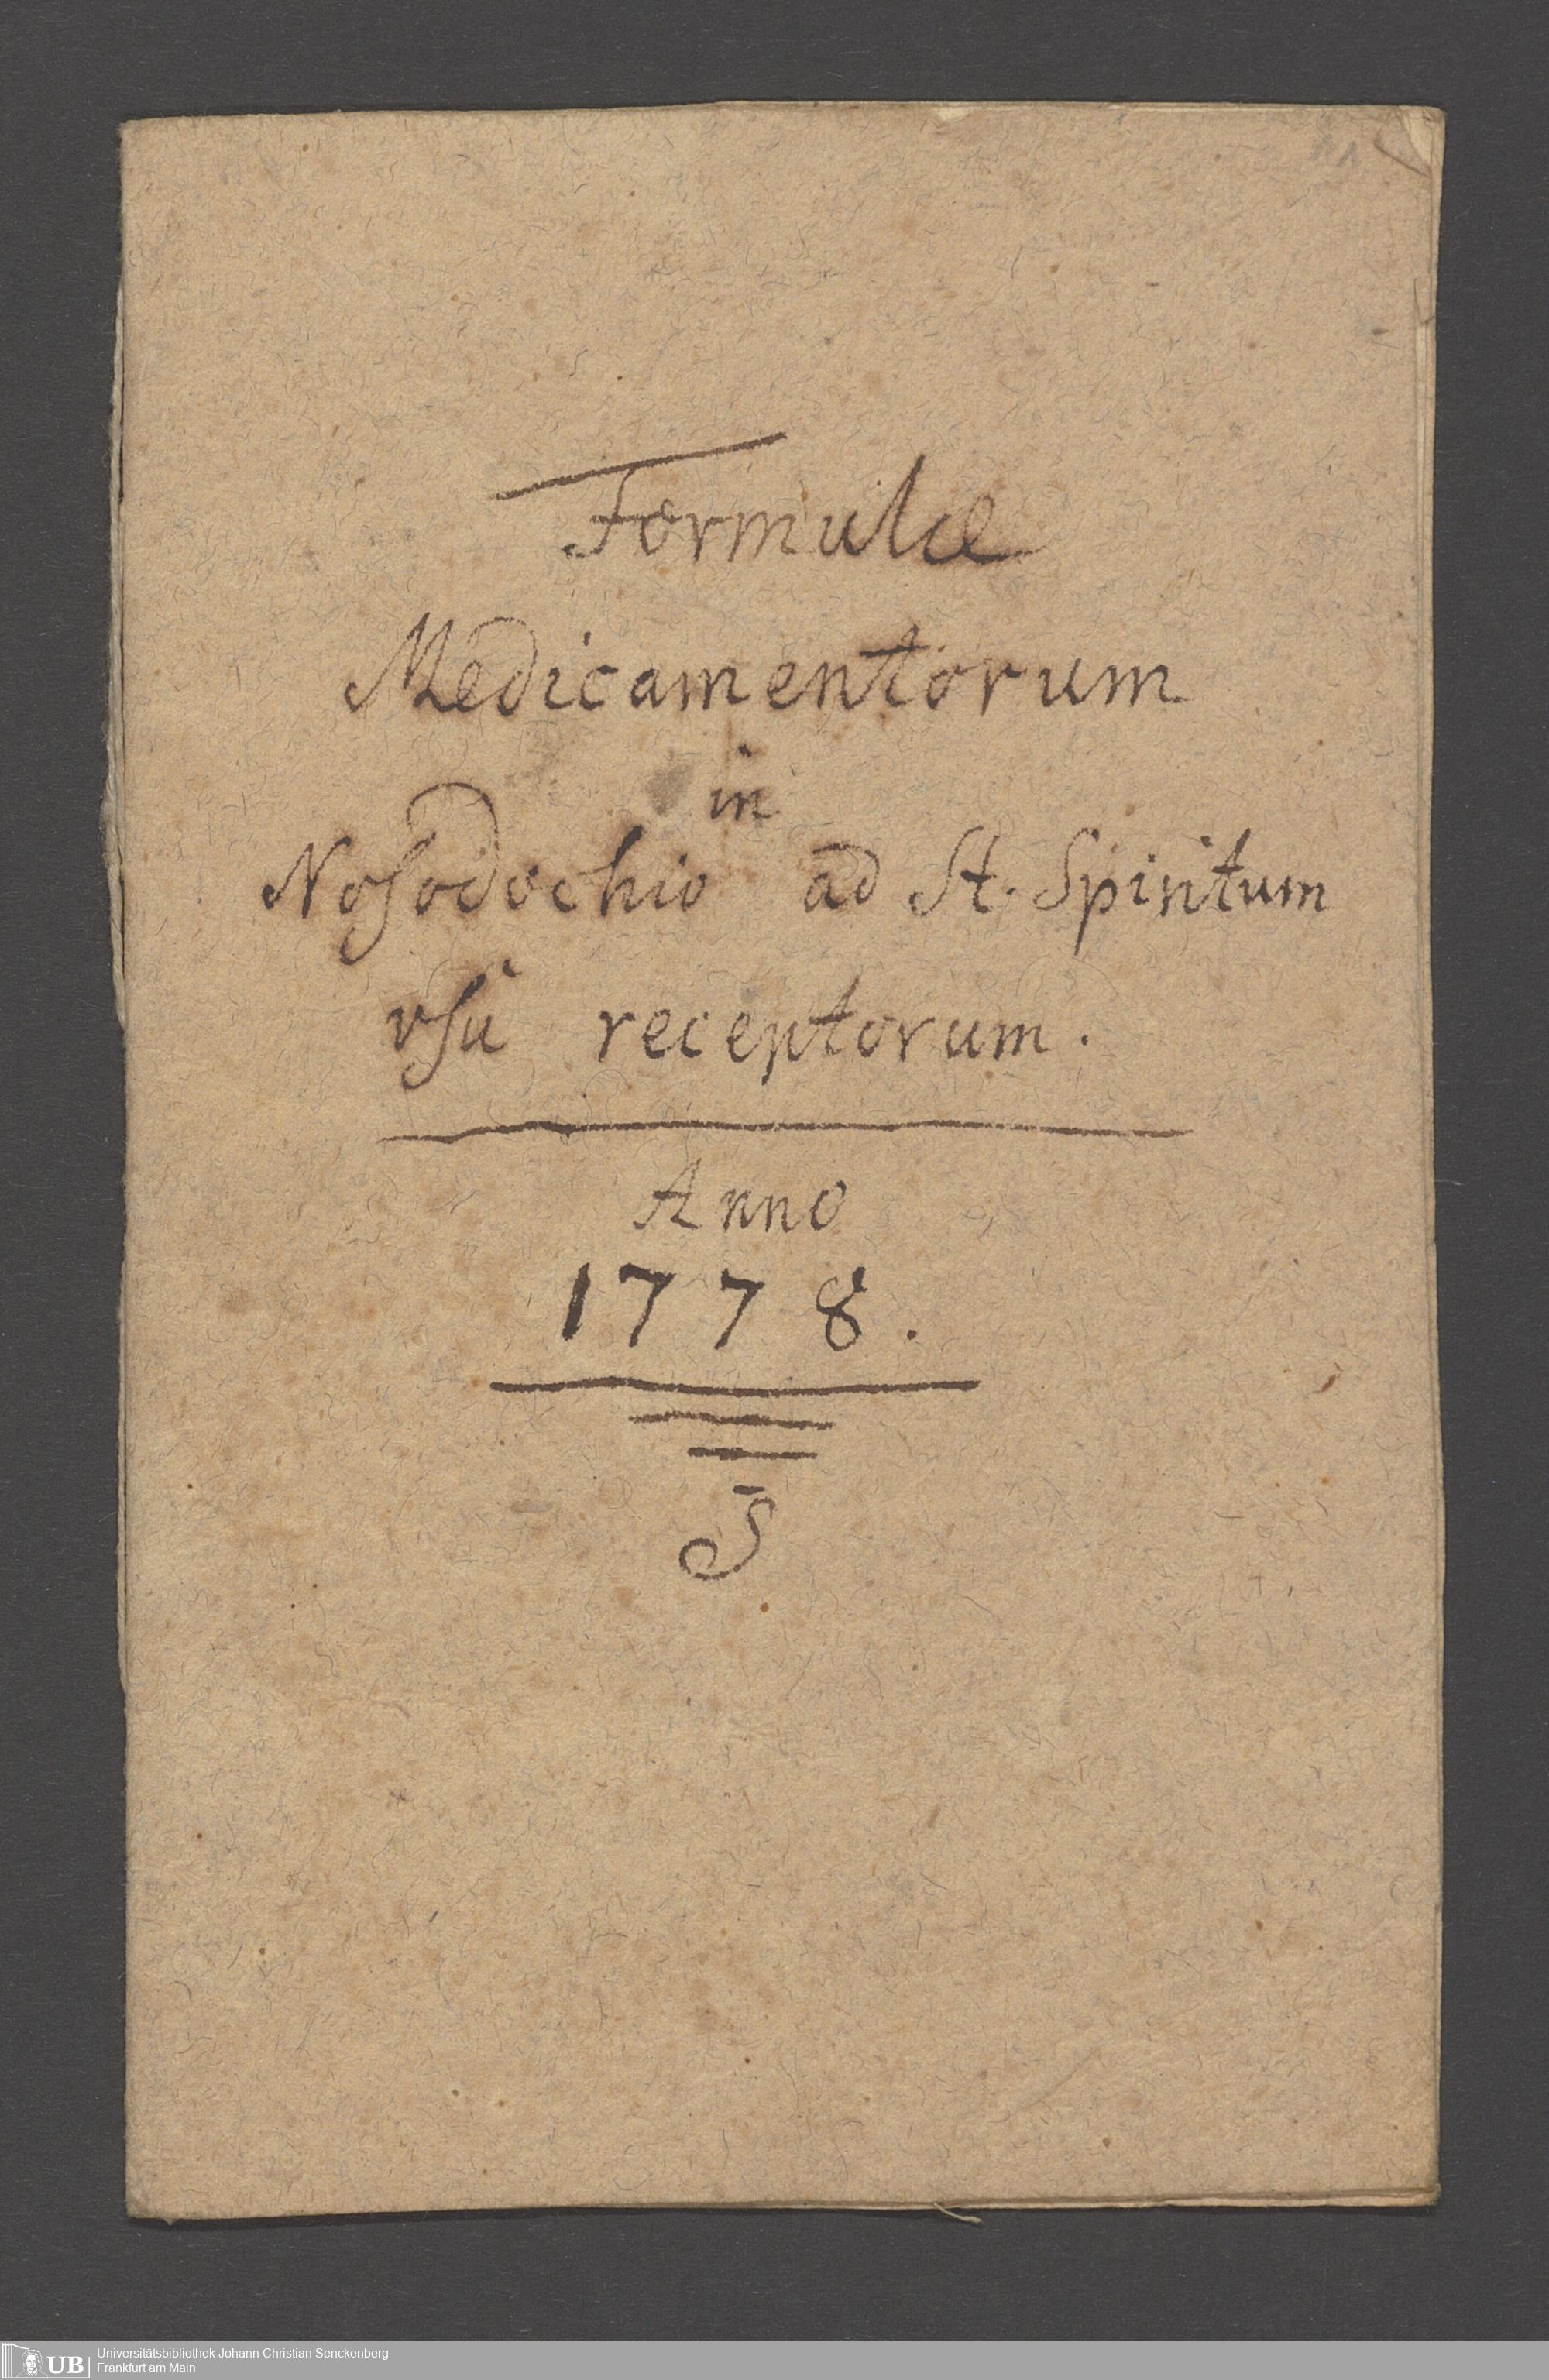 Formulæ
Medicamentorum
in
Nosodochio ad St. Spiritum
vsu receptorum.
Anno
1778.
UB
Universitätsbibliothek Johann Christian Senckenberg
Frankfurt am Main